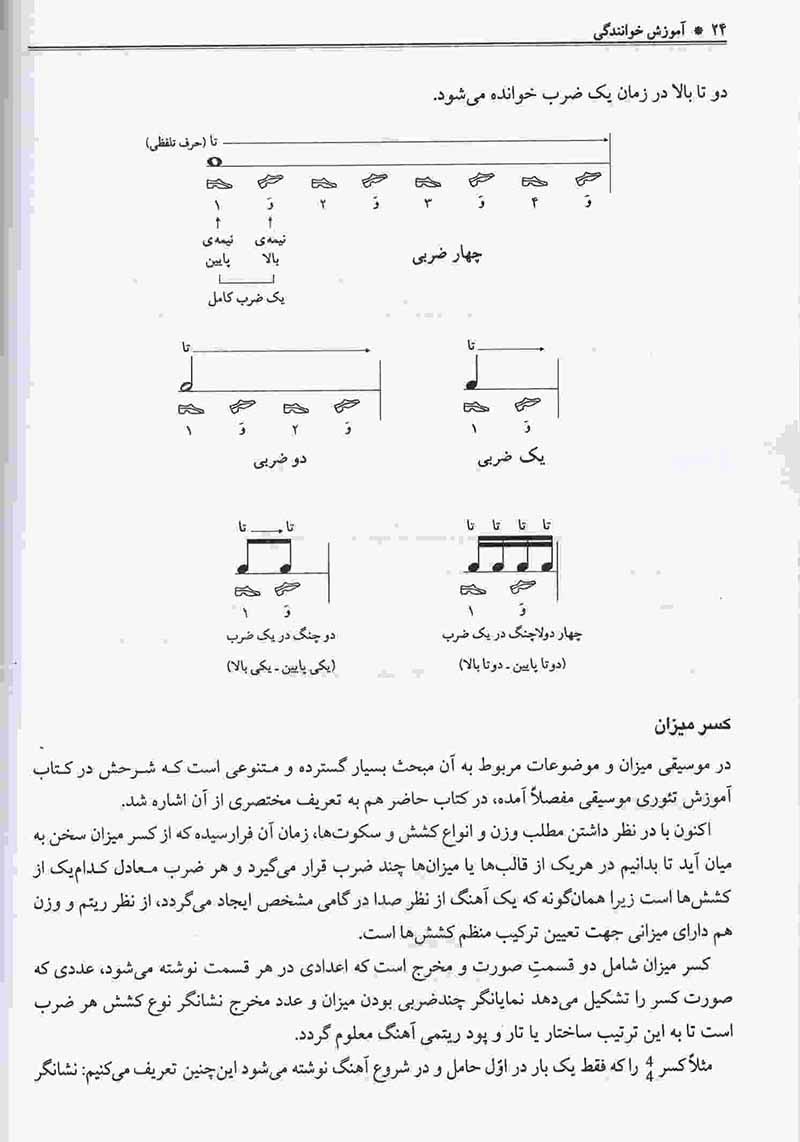 ۲۴ * آموزش خوانندگی
دو تا بالا در زمان یک ضرب خوانده می‌شود.
تا (حرف تلفظی)
۱ وَ ۲ وَ ۳ وَ ۴ وَ
نیمه‌ی نیمه‌ی
پایین بالا
چهار ضربی
یک ضرب کامل
تا
۱ وَ ۲ وَ
دو ضربی
تا
۱ وَ
یک ضربی
تا تا
۱ وَ
دو چنگ در یک ضرب
(یکی پایین ـ یکی بالا)
تا تا تا تا
۱ وَ
چهار دولاچنگ در یک ضرب
(دوتا پایین ـ دوتا بالا)
کسر میزان
در موسیقی میزان و موضوعات مربوط به آن مبحث بسیار گسترده و متنوعی است که شرحش در کتاب
آموزش تئوری موسیقی مفصلاً آمده، در کتاب حاضر هم به تعریف مختصری از آن اشاره شد.
اکنون با در نظر داشتن مطلب وزن و انواع کشش و سکوت‌ها، زمان آن فرارسیده که از کسر میزان سخن به
میان آید تا بدانیم در هریک از قالب‌ها یا میزان‌ها چند ضرب قرار می‌گیرد و هر ضرب معادل کدام‌یک از
کشش‌ها است زیرا همان‌گونه که یک آهنگ از نظر صدا در گامی مشخص ایجاد می‌گردد، از نظر ریتم و وزن
هم دارای میزانی جهت تعیین ترکیب منظم کشش‌ها است.
کسر میزان شامل دو قسمتِ صورت و مخرج است که اعدادی در هر قسمت نوشته می‌شود، عددی که
صورت کسر را تشکیل می‌دهد نمایانگر چندضربی بودن میزان و عدد مخرج نشانگر نوع کشش هر ضرب
است تا به این ترتیب ساختار یا تار و پود ریتمی آهنگ معلوم گردد.
مثلاً کسر 4/4 را که فقط یک بار در اوّل حامل و در شروع آهنگ نوشته می‌شود این‌چنین تعریف می‌کنیم: نشانگر